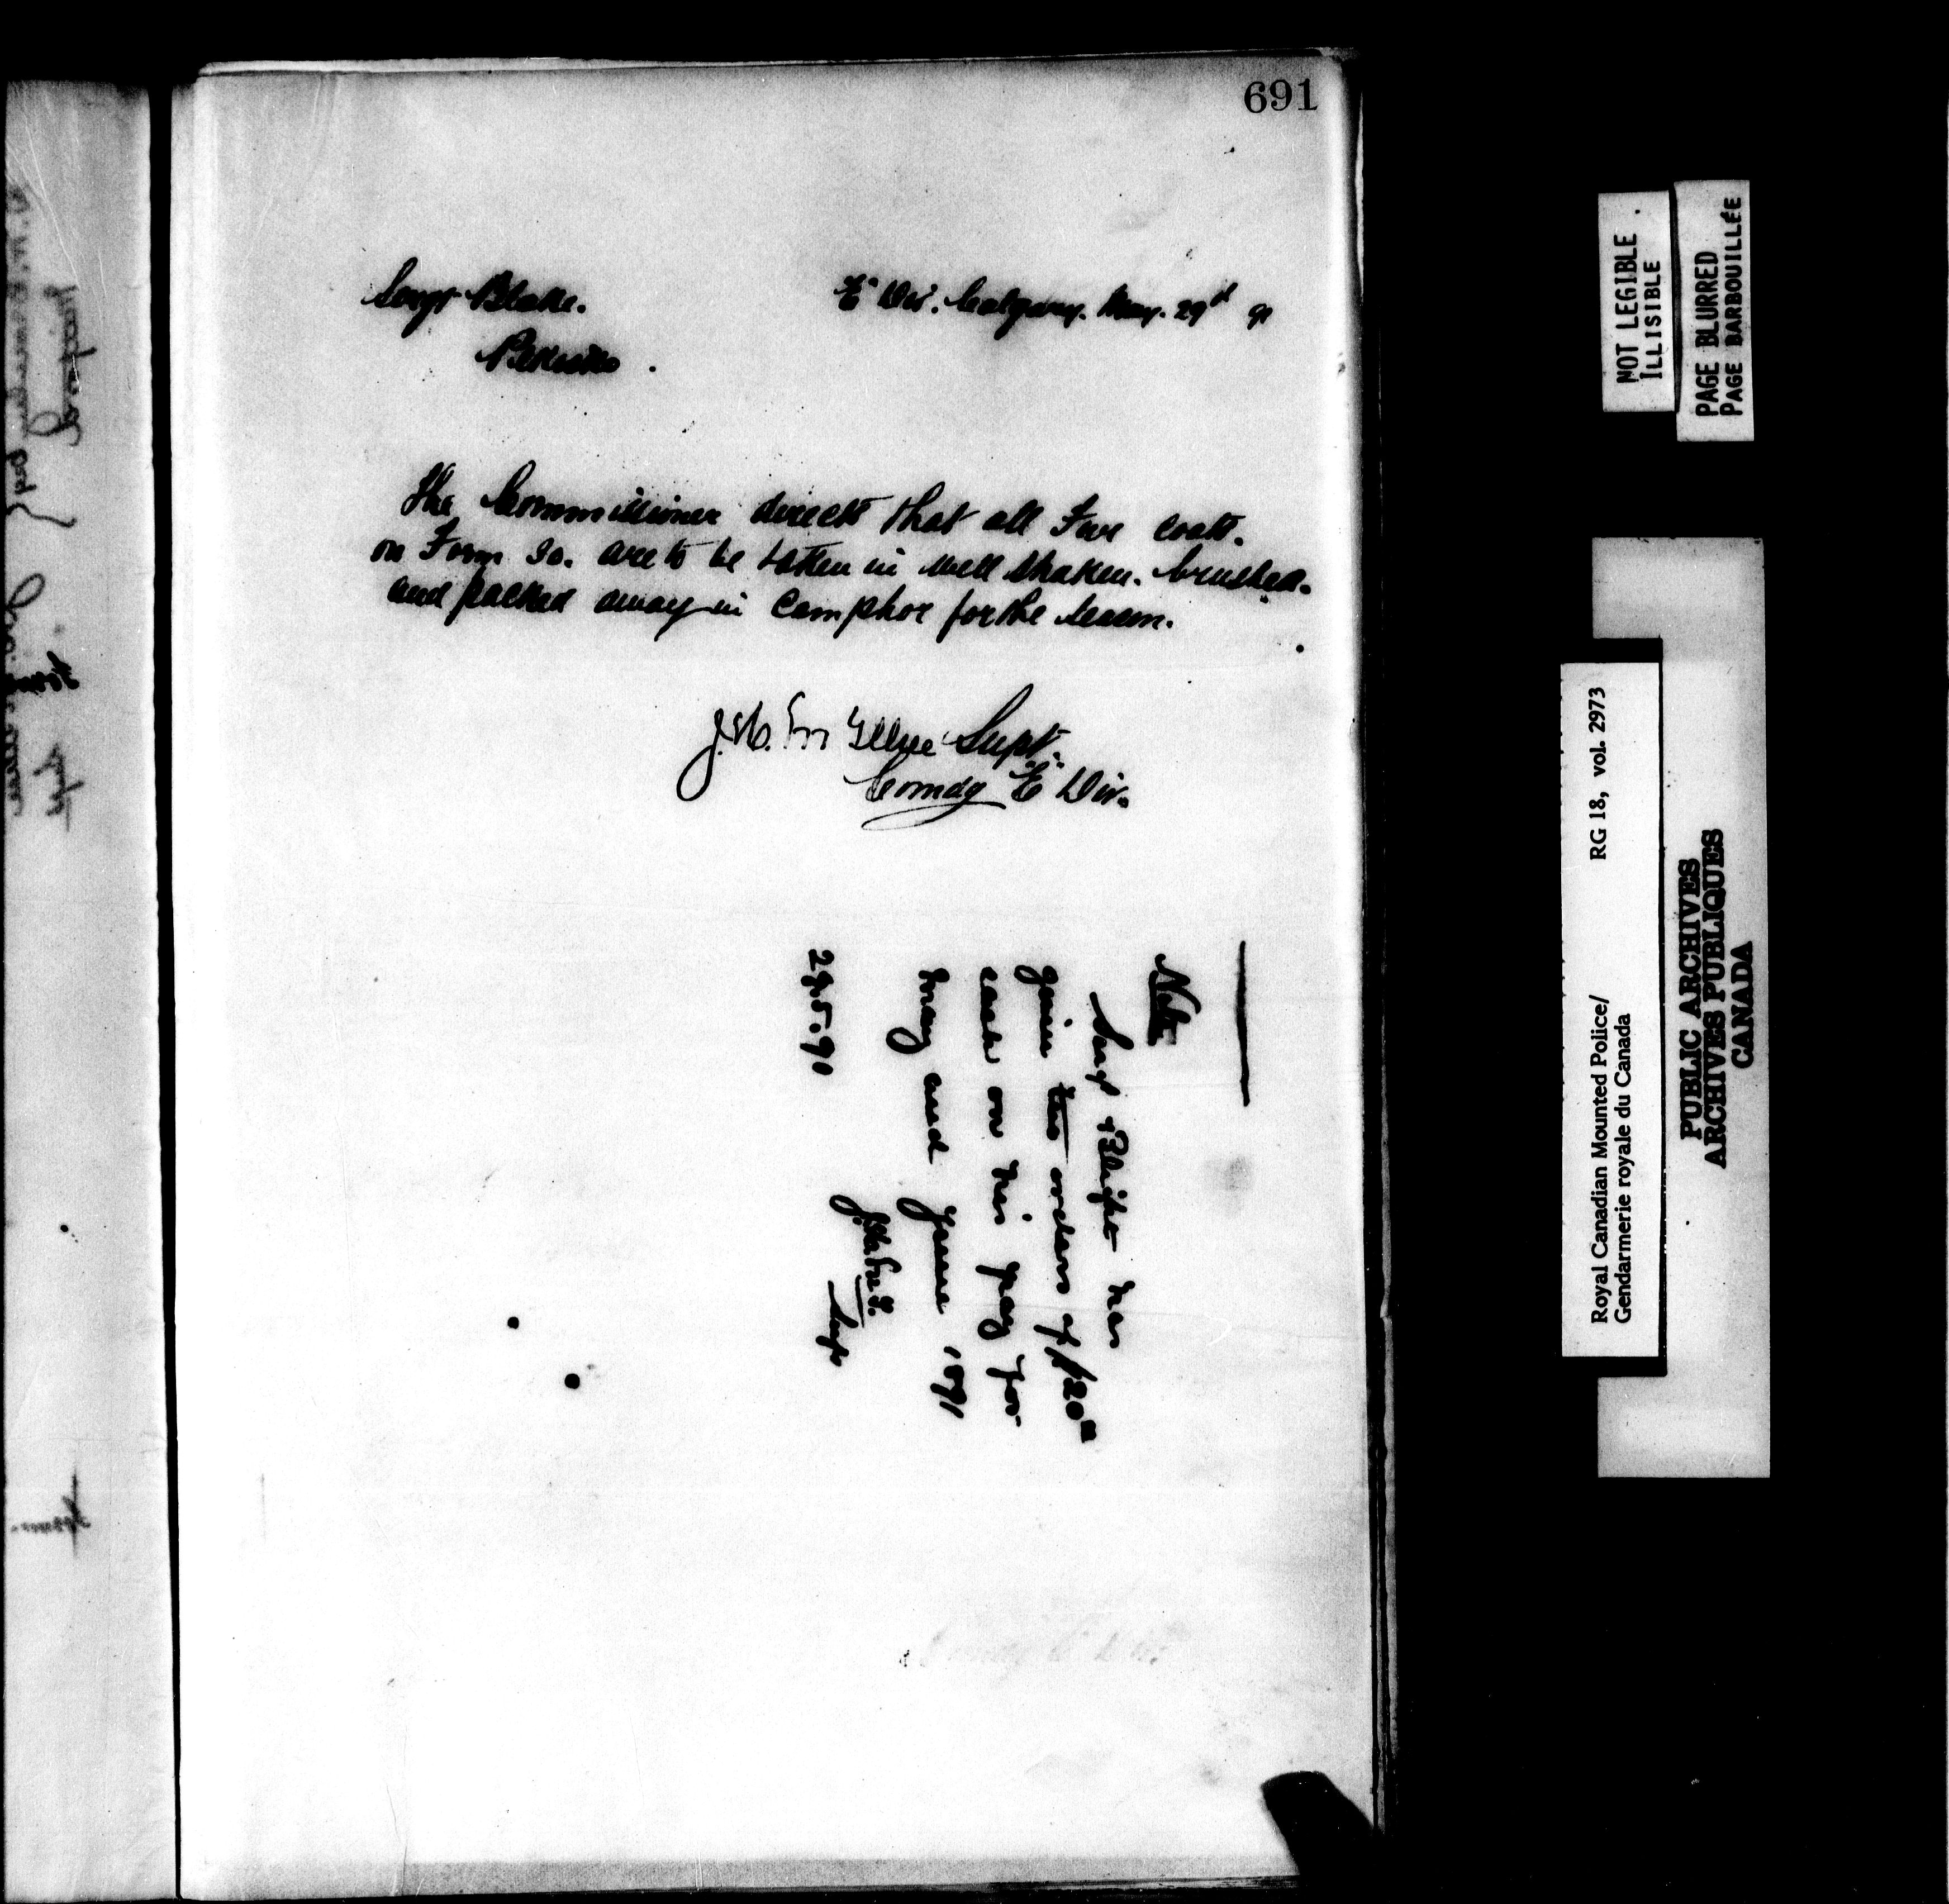 691
Sergt Blake.
"E" Div. Calgary. May. 29th 91
Pekisko.
The Commissioner directs that all Fur coats.
on Form 30. are to be taken in well shaken. brushed.
and packed away in Camphor for the season.
Supt.
Comdg "E" Div.
Note
Sergt Blight has
given two orders of $20
each on his pay for
May and June 1891
Supt
NOT LEGIBLE
ILLISIBLE
PAGE BLURRED
PAGE BARBOUILLÉE
Royal Canadian Mounted Police/
Gendarmerie royale du Canada
RG 18, vol. 2973
PUBLIC ARCHIVES
ARCHIVES PUBLIQUES
CANADA